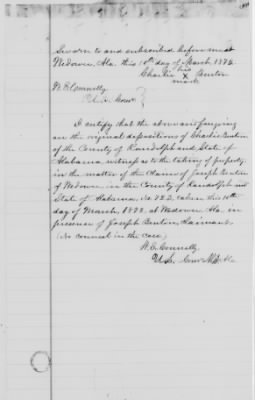 Sworn to and subscribed before me at
Wedowee, Ala. this 10th day of March 1872.
his
Charlie X Benton
mark
W. C. Connelly
U.S. Comr
I certify that the above and foregoing
are the original depositions of Charlie Benton
of the County of Randolph and State of
Alabama, witness as to the taking of property,
in the matter of the Claim of Joseph Benton
of Wedowee in the County of Randolph and
State of Alabama, No. 323, taken this 10th
day of March, 1872, at Wedowee Ala. in
presence of Joseph Benton, Claimant.
(No counsel in the case)
W. C. Connelly
U.S. Comr